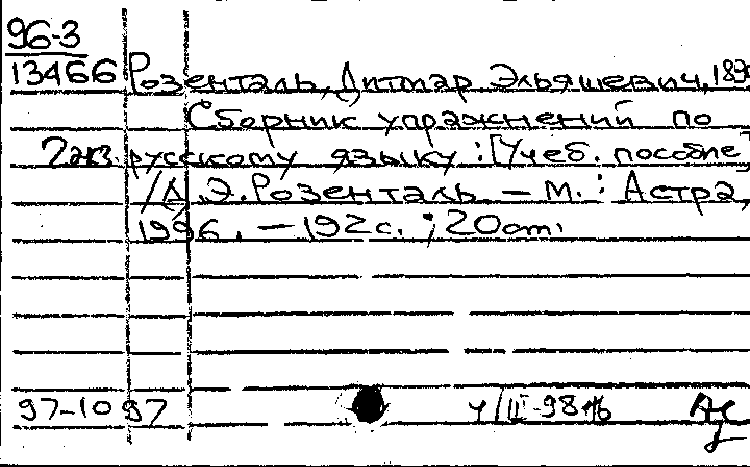 96-3
13466 Розенталь, Дитмар Эльяшевич, 189
Сборник упражнений по
2экз. русскому языку : [Учеб. пособие]
/Д.Э.Розенталь. — М. : Астра,
1996. — 192с. ; 20см.
97-1097